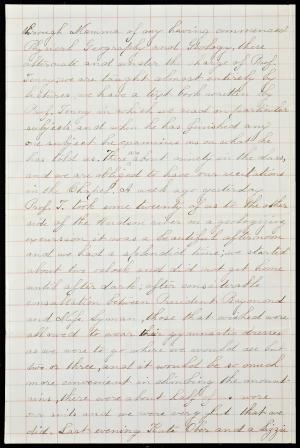 enough Mamma of my having commenced
Physical Geography and Geology, these
alternate and under the charge of Prof.
Tenny we are taught almost entirely by
lectures, we have a text book written by
Prof. Tenny in which we read on particular
subjects and when he has finished any
one subject he examines us on what he
has told us. There are about ninety in the class,
and we are obliged to have our recitations
in the Chapel. A week ago yesterday
Prof. T. took some twenty of us to the other
side of the Hudson river on a geologizing
excursion it was a beautiful afternoon
and we had a splendid time; we started
about two oclock and did not get home
until after dark; after considerable
consultation between President Raymond
and Miss Lyman, those that wished were
allowed to wear their gymnastic dresses
as we were to go where we would see but
two or three, and it would be so much
more convenient in climbing the mount-
ains, there were about half wore
our suits and we were very glad that we
did. Last evening Kate and a Lizzie